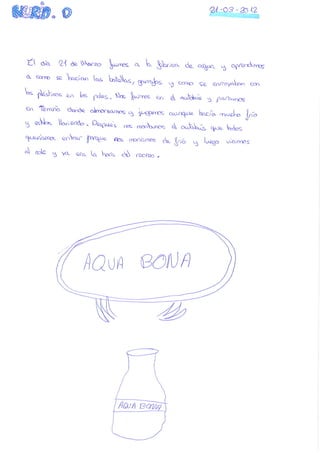 NURIA. O
21-03-2012
El día 21 de Marzo fuimos a la fábrica de agua y aprendimos
a como se hacían las botellas, garrafas y como se envolvían con
los plásticos en los palos. Nos fuimos en el autobús y paramos
en Tenorio donde almorzamos y jugamos aunque hacía mucho frío
y estaba lloviendo. Después nos montamos al autobús que todos
queríamos entrar porque nos moríamos de frío y luego vinimos
al cole y ya era la hora del recreo.
AQUA BONA
AQUA BONA